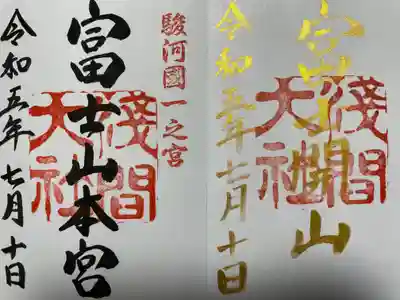 駿河國一之宮
富士山本宮
淺間大社
令和五年七月十日
富士開山
淺間大社
令和五年七月十日